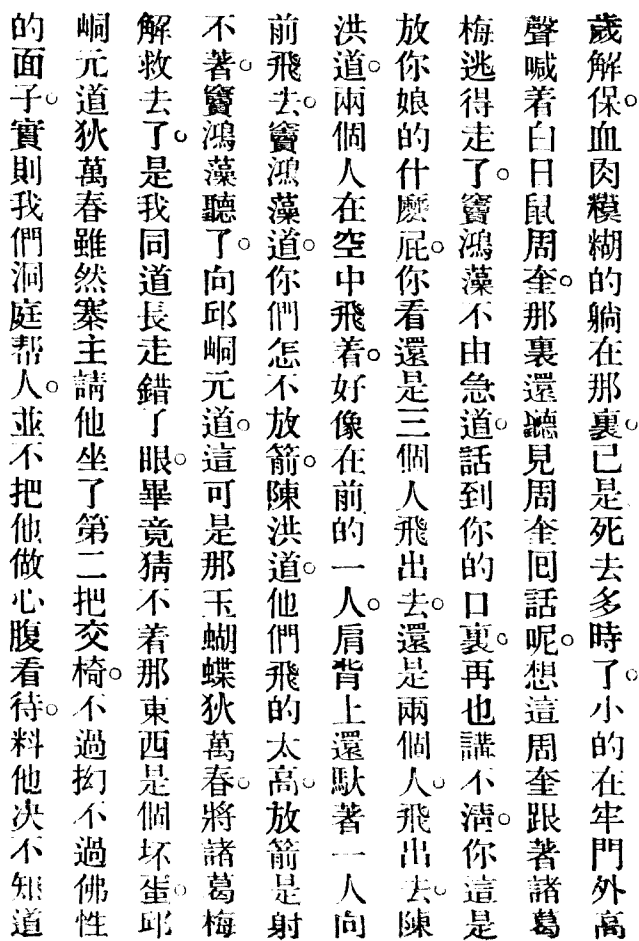 歲解保。血肉糢糊的躺在那裏。已是死去多時了。小的在牢門外高
聲喊着白日鼠周奎。那裏還聽見周奎囘話呢。想這周奎跟著諸葛
梅逃得走了。竇鴻藻不由急道。話到你的口裏。再也講不淸。你這是
放你娘的什麽屁。你看還是三個人飛出去。還是兩個人。飛出去。陳
洪道。兩個人在空中飛着。好像在前的一人。肩背上還馱著一人向
前飛去。竇鴻藻道。你們怎不放箭。陳洪道。他們飛的太高。放箭是射
不著。竇鴻藻聽了。向邱峒元道。這可是那玉蝴蝶狄萬春。將諸葛梅
解救去了。是我同道長走錯了眼。畢竟猜不着那東西是個坏蛋。邱
峒元道狄萬春雖然寨主請他坐了第二把交椅。不過抝不過佛性
的面子。實則我們洞庭帮人。並不把他做心腹看待。料他决不知道